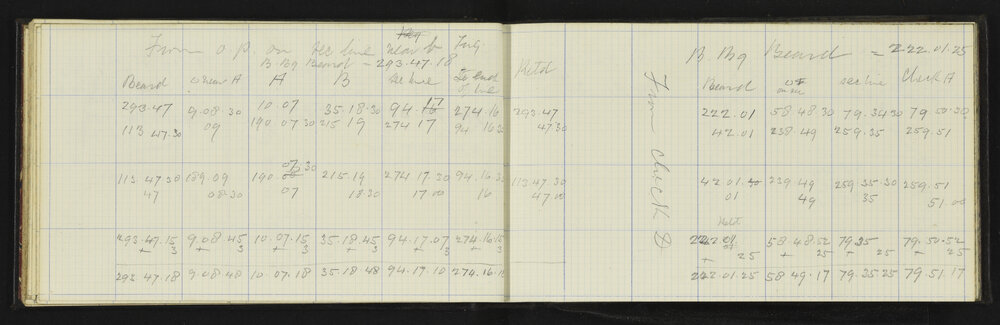 From o p. on sec line near to Trig
B. Brg Beard = 293.47.18
Beard A A B sec line To end of line Retd
293.47 9.08 30 10.07 35.18.30 94.17 274.16 293.47
113 47.30 09 190.07.30 215 19 274 17 94 16 47.30
113 47 30 189 09 190 07.30 215.19 274 17.30 94.16 113.47.30
47 08.30 07 18 30 17 00 16 47.00
293.47.15 9.08 45 10.07.15 35.18.45 94.17.07 274.16.15
+ 3 + 3 + 3 + 3 + 3 + 3
293 47.18 9 08 48 10.07.18 35.18 48 94.17 10 274.16.18
From check D
B. Brg Beard = 222.01.25
Beard sec line Check A
222.01 58 48 30 79.34 30 79 50.30
42.01 238 49 259.35 259.51
42 01.30 239.49 259 35.30 259.51
01 49 35 51.00
222.01 58 48.52 79.35 79.50.52
+ 25 + 25 + 25 + 25
222.01 25 58 49.17 79.35 25 79.51.17